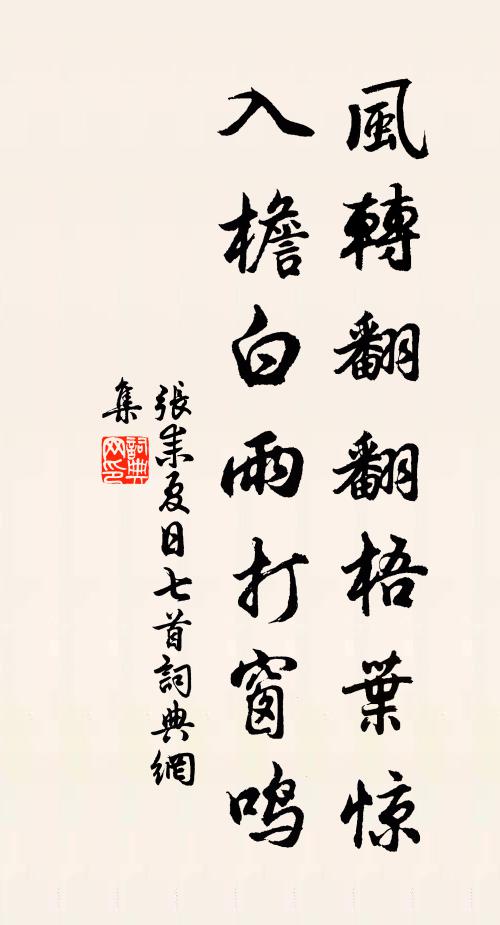 風轉翻翻梧葉惊
入檐白雨打窗鸣
張耒夏日七首詞典網
集
詞典网印